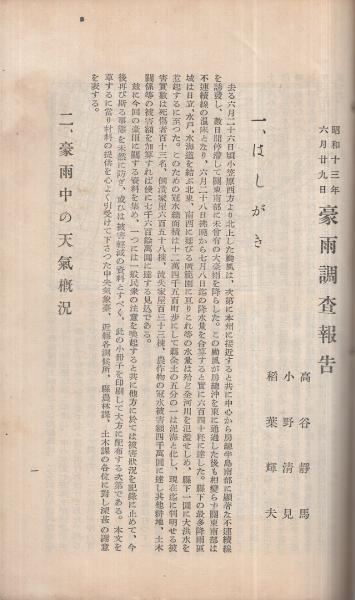 昭和十三年
六月廿九日
豪雨調査報告
高谷靜馬
小野清見
稲葉輝夫
一、はしがき
去る六月二十六日頃小笠原西方より北上した颱風は、次第に本州に接近すると共に中心から房總半島南部に顯著な不連續線
を誘發し、數日間停滯して關東南部に未曾有の大豪雨を降らした。この颱風が房總沖を東に通過した後も相變らず關東南部は
不連續線の温床となり、六月二十八日拂曉から七月八日迄の降水量を合算すると實に六百四十粍に達した。縣下の最多降雨區
域は日立、水戸、水海道を結ぶ北東、南西に達る廣範圍に亘りこれ等の水量は殆ど全河川を氾濫せしめ、縣下一圓に大洪水を
惹起するに至つた。このための冠水總面積は十二萬四千五百町歩にして縣全土の五分の一は泥海と化し、現在迄に判明せる被
害實數は死傷者百十三名、倒潰家屋六百五十八棟、流失家屋百三十三棟、農作物の冠水被害額四千萬圓に達し其他耕地、土木
關係等の被害額を加算すれば優に七千六百餘萬圓に達する見込である。
茲に今回の豪雨に關する資料を集め、一つには一般民衆の注意を喚起すると共に他方に於ては被害狀況を記錄に止めて、今
後再び斯る事態を未然に防ぎ、或ひは被害輕減の資料とすべく、此の小冊子を印刷して大方に配布する次第である。本文を
草するに當り材料の提供を心よく引受けて下さつた中央氣象臺、近縣各測候所、縣農林課、土木課の各位に對し深甚の謝意
を表する。
二、豪雨中の天氣概況
一